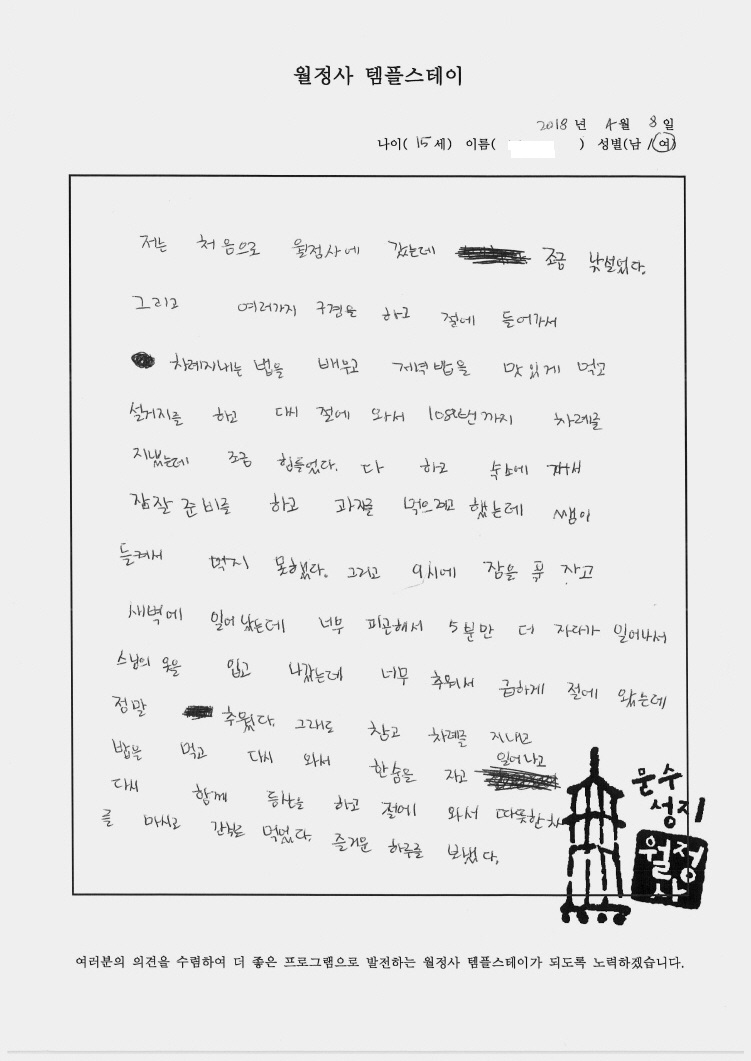 월정사 템플스테이
2018 년 4 월 8 일
나이( 15 세) 이름( ) 성별(남 / 여)
저는 처음으로 월정사에 갔는데 조금 낯설었다.
그리고 여러가지 구경을 하고 절에 들어가서
차례지내는 법을 배우고 저녁밥을 맛있게 먹고
설거지를 하고 다시 절에 와서 108번까지 차례를
지냈는데 조금 힘들었다. 다 하고 숙소에 가서
잠잘 준비를 하고 과자를 먹으려고 했는데 쌤이
들켜서 먹지 못했다. 그리고 9시에 잠을 푹 자고
새벽에 일어났는데 너무 피곤해서 5분만 더 자다가 일어나서
스님의 옷을 입고 나갔는데 너무 추워서 급하게 절에 왔는데
정말 추웠다. 그래도 참고 차례를 지내고
밥을 먹고 다시 와서 한숨을 자고 일어나고
다시 함께 등산을 하고 절에 와서 따뜻한 차
를 마시고 간식도 먹었다. 즐거운 하루를 보냈다.
문수
성지
월정
사
여러분의 의견을 수렴하여 더 좋은 프로그램으로 발전하는 월정사 템플스테이가 되도록 노력하겠습니다.